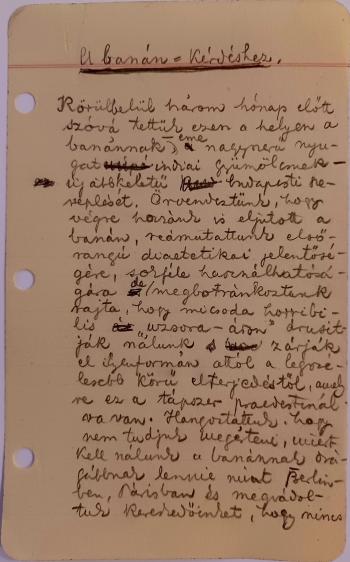 A banán-kérdéshez.
Körülbelül három hónap előtt
szóvá tettük ezen a helyen a
banánnak, eme nagyszerű nyu-
gat indiai gyümölcsnek
újabbkeletű budapesti sze-
replését. Örvendeztünk, hogy
végre hozzánk is eljutott a
banán, reámutattunk első-
rangú diaetetikai jelentősé-
gére, sokféle használhatósá-
gára de megbotránkoztunk
rajta, hogy micsoda horribi-
lis "uzsora-áron" árusít-
ják nálunk s zárják
el ilyenformán attól a legszé-
lesebb körű elterjedéstől, amely-
re ez a tápszer praedestinál-
va van. Hangoztattuk, hogy
nem tudjuk megérteni, miért
kell nálunk a banánnak drá-
gábbnak lennie mint Berlin-
ben, Párisban és megvádol-
tuk kereskedőinket, hogy nincs